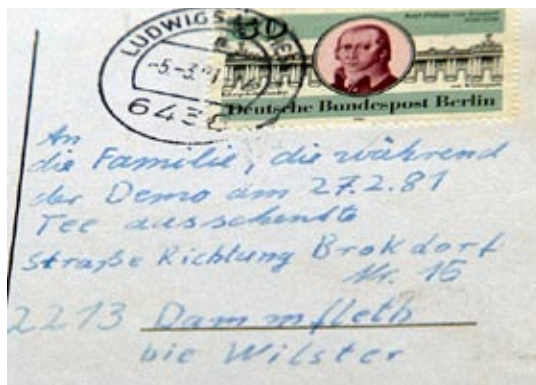 LUDWIGS
-5.-3.
Deutsche Bundespost Berlin
An
die Familie, die während
der Demo am 27.2.81
Tee ausschenkte
Straße Richtung Brokdorf
Nr. 15
2213 Dammfleth
bie Wilster